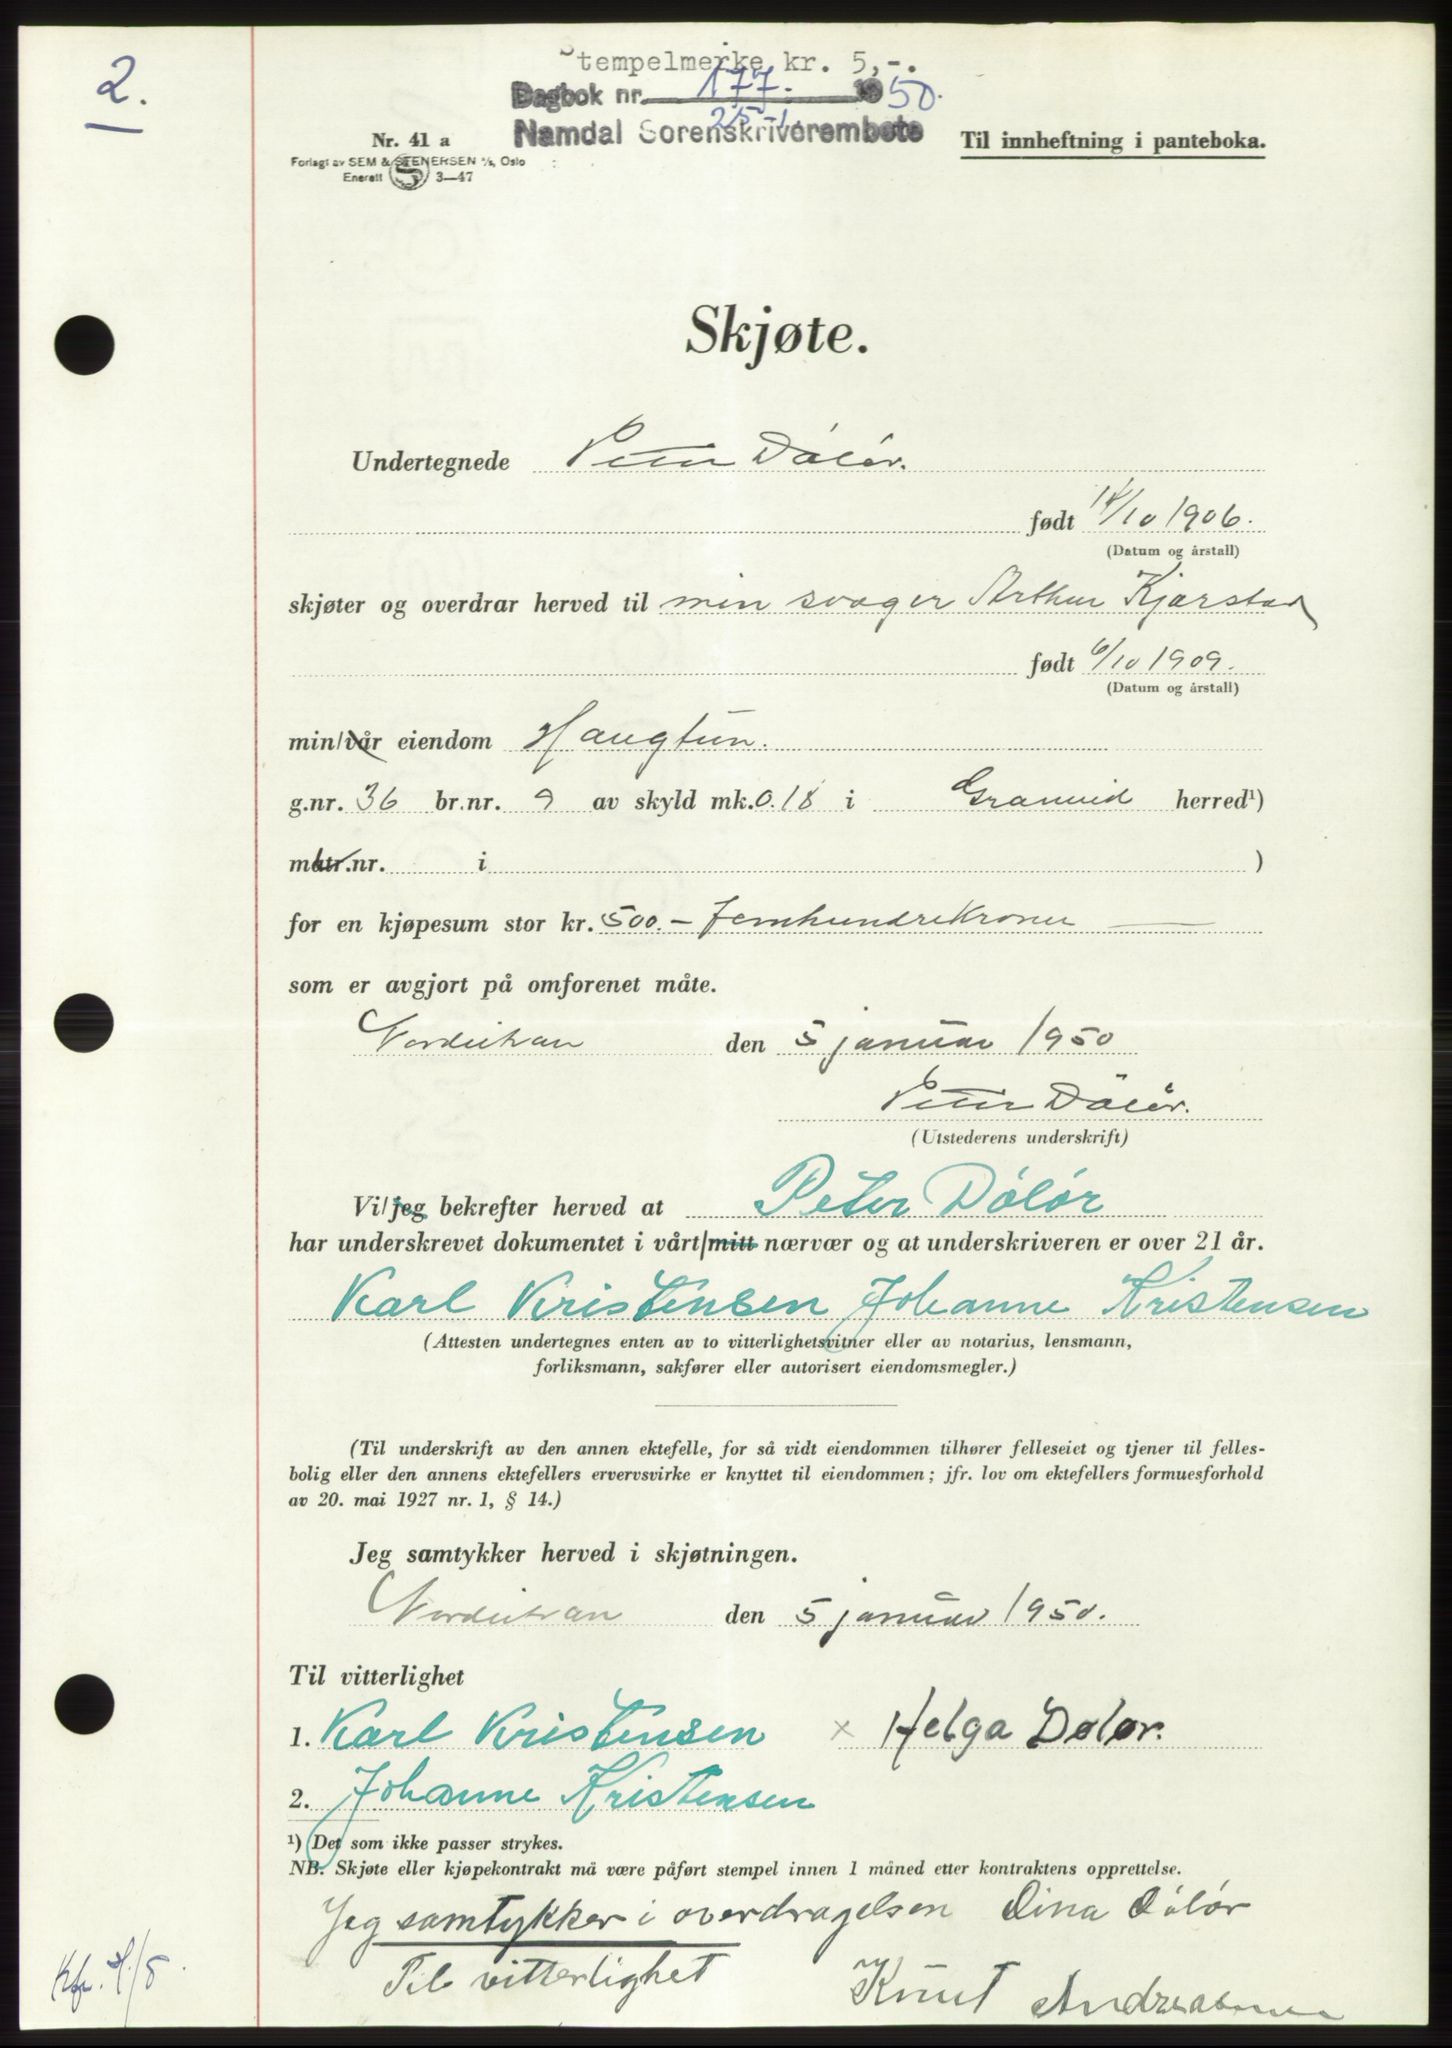 2.
Stempelmerke kr. 5,-.
Dagbok nr. 177. 1950.
25-1
Namdal Sorenskriverembete
Nr. 41 a
Forlagt av SEM & STENERSEN A/S, Oslo
Enerett 3—47
Til innheftning i panteboka.
Skjøte.
Undertegnede Peter Dölör.
født 14/10 1906.
(Datum og årstall)
skjøter og overdrar herved til min svoger Arthur Kjærstad
født 6/10 1909.
(Datum og årstall)
min/vår eiendom Haugtun.
g.nr. 36 br.nr. 9 av skyld mk. 0.18 i Gravvid herred¹)
matr.nr. i )
for en kjøpesum stor kr. 500.- Femhundrekroner
som er avgjort på omforenet måte.
den 5 januar 1950
Peter Dölör.
(Utstederens underskrift)
Vi/jeg bekrefter herved at Peter Dölör
har underskrevet dokumentet i vårt/mitt nærvær og at underskriveren er over 21 år.
Karl Kristensen Johanne Kristensen
(Attesten undertegnes enten av to vitterlighetsvitner eller av notarius, lensmann,
forliksmann, sakfører eller autorisert eiendomsmegler.)
(Til underskrift av den annen ektefelle, for så vidt eiendommen tilhører felleseiet og tjener til felles-
bolig eller den annens ektefellers ervervsvirke er knyttet til eiendommen; jfr. lov om ektefellers formuesforhold
av 20. mai 1927 nr. 1, § 14.)
Jeg samtykker herved i skjøtningen.
den 5 januar 1950.
Til vitterlighet
1. Karl Kristensen × Helga Dølør.
2. Johanne Kristensen
¹) Det som ikke passer strykes.
NB. Skjøte eller kjøpekontrakt må være påført stempel innen 1 måned etter kontraktens opprettelse.
Jeg samtykker i overdragelsen Dina Dölör
Til vitterlighet
Knut Andreassen